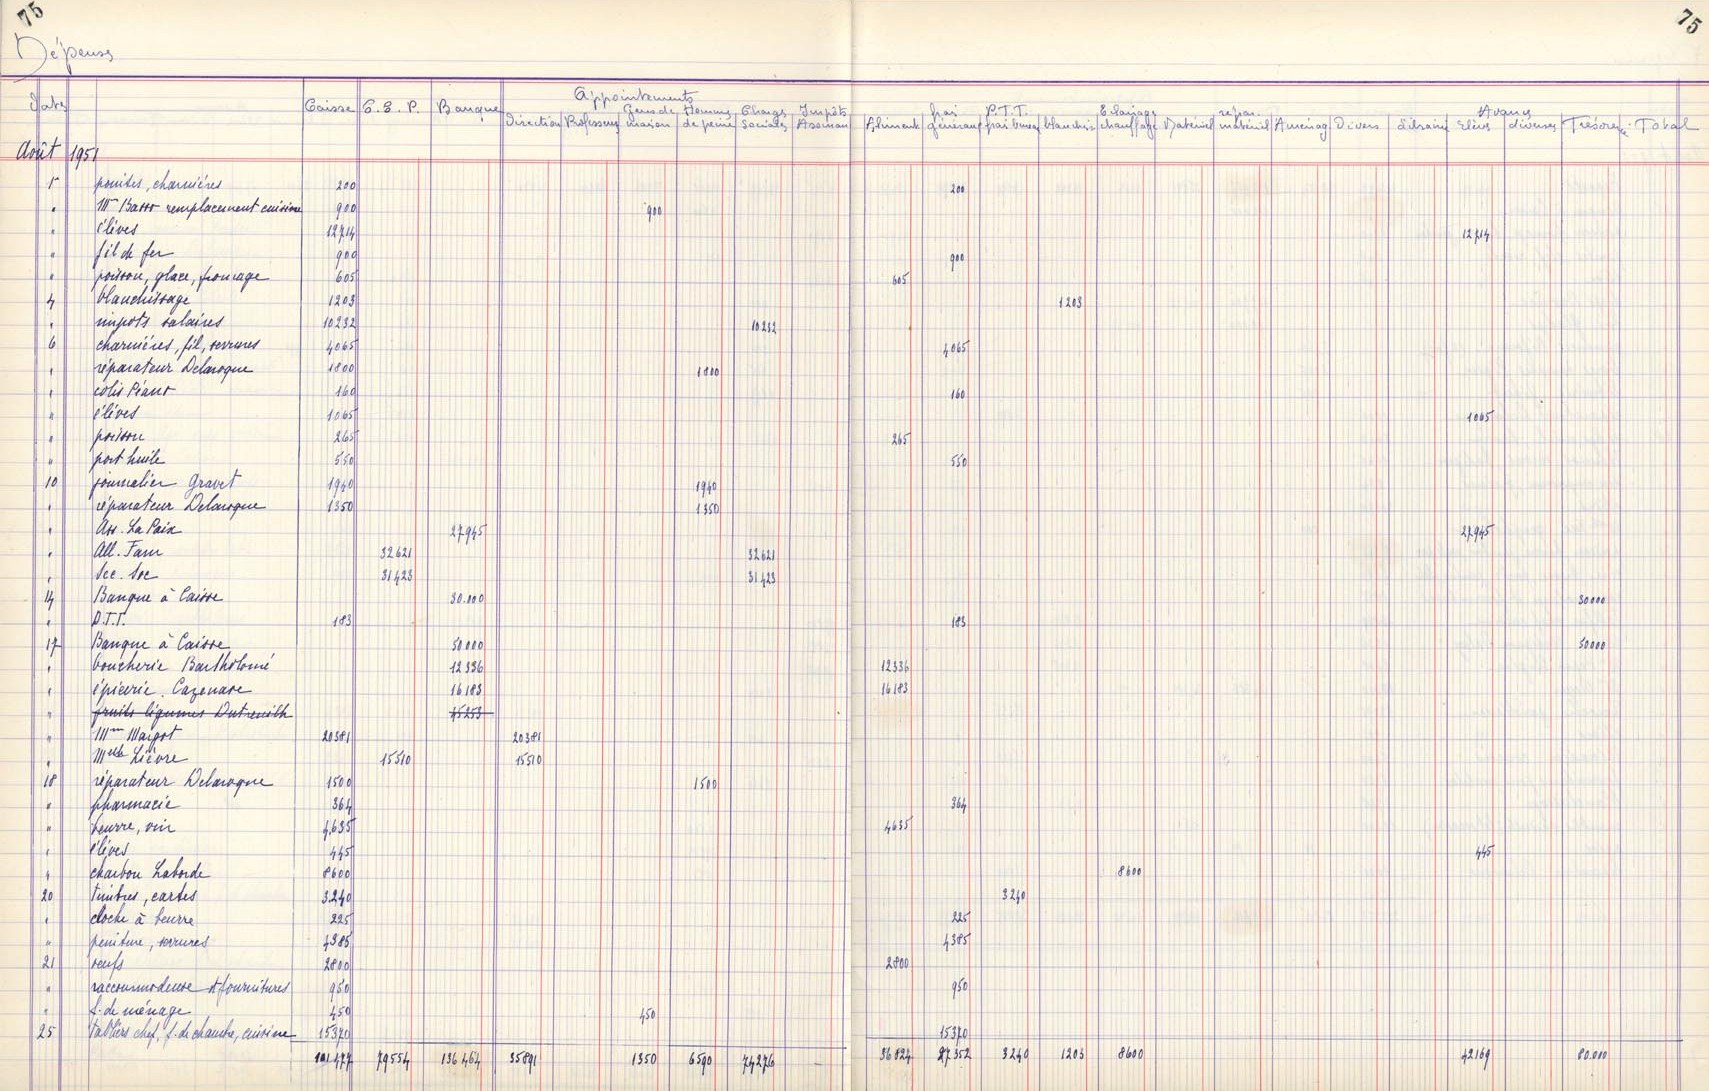 75 75
Dépenses
Appointements
Date Caisse C.C.P. Banque Direction Professeurs Gens de maison Hommes de peine Charges sociales Impôts Assuran Aliments frais généraux P.T.T. frais bureau blanchis Eclairage chauffage Matériel répar. matériel Aménag Divers Librairie Avances Elèves diverses Trésorerie Total
Août 1951
1 pointes, charnières 200 200
" Mme Basso remplacement cuisine 900 900
" élèves 12714 12714
" fil de fer 900 900
" poisson, glace, fromage 605 605
4 blanchissage 1203 1203
" impots salaires 10232 10232
6 charnières, fil, serrures 4065 4065
" réparateur Delaroque 1800 1800
" colis Péant 160 160
" élèves 1065 1065
" poisson 265 265
" port huile 550 550
10 journalier Gravet 1940 1940
" réparateur Delaroque 1350 1350
" Ass. La Paix 27945 27945
" All. Fam 32621 32621
" Sec. Soc 31423 31423
14 Banque à Caisse 30.000 30000
" P.T.T. 183 183
17 Banque à Caisse 50000 50000
" boucherie Bartholomé 12336 12336
" épicerie Cazenave 16183 16183
" fruits légumes Dutreuilh 45253
" Mme Margot 20381 20381
" Melle Lièvre 15510 15510
18 réparateur Delaroque 1500 1500
" pharmacie 364 364
" beurre, vin 4.635 4635
" élèves 445 445
" charbon Laborde 8600 8600
20 timbres, cartes 3.240 3240
" cloche à beurre 225 225
" peinture, serrures 4385 4385
21 oeufs 2800 2800
" raccommodeuse et fournitures 950 950
" f. de ménage 450 450
25 tabliers chef, f. de chambre, cuisine 15370 15370
101.477 79554 136464 35891 1350 6590 74276 36824 27352 3240 1203 8600 42169 80.000